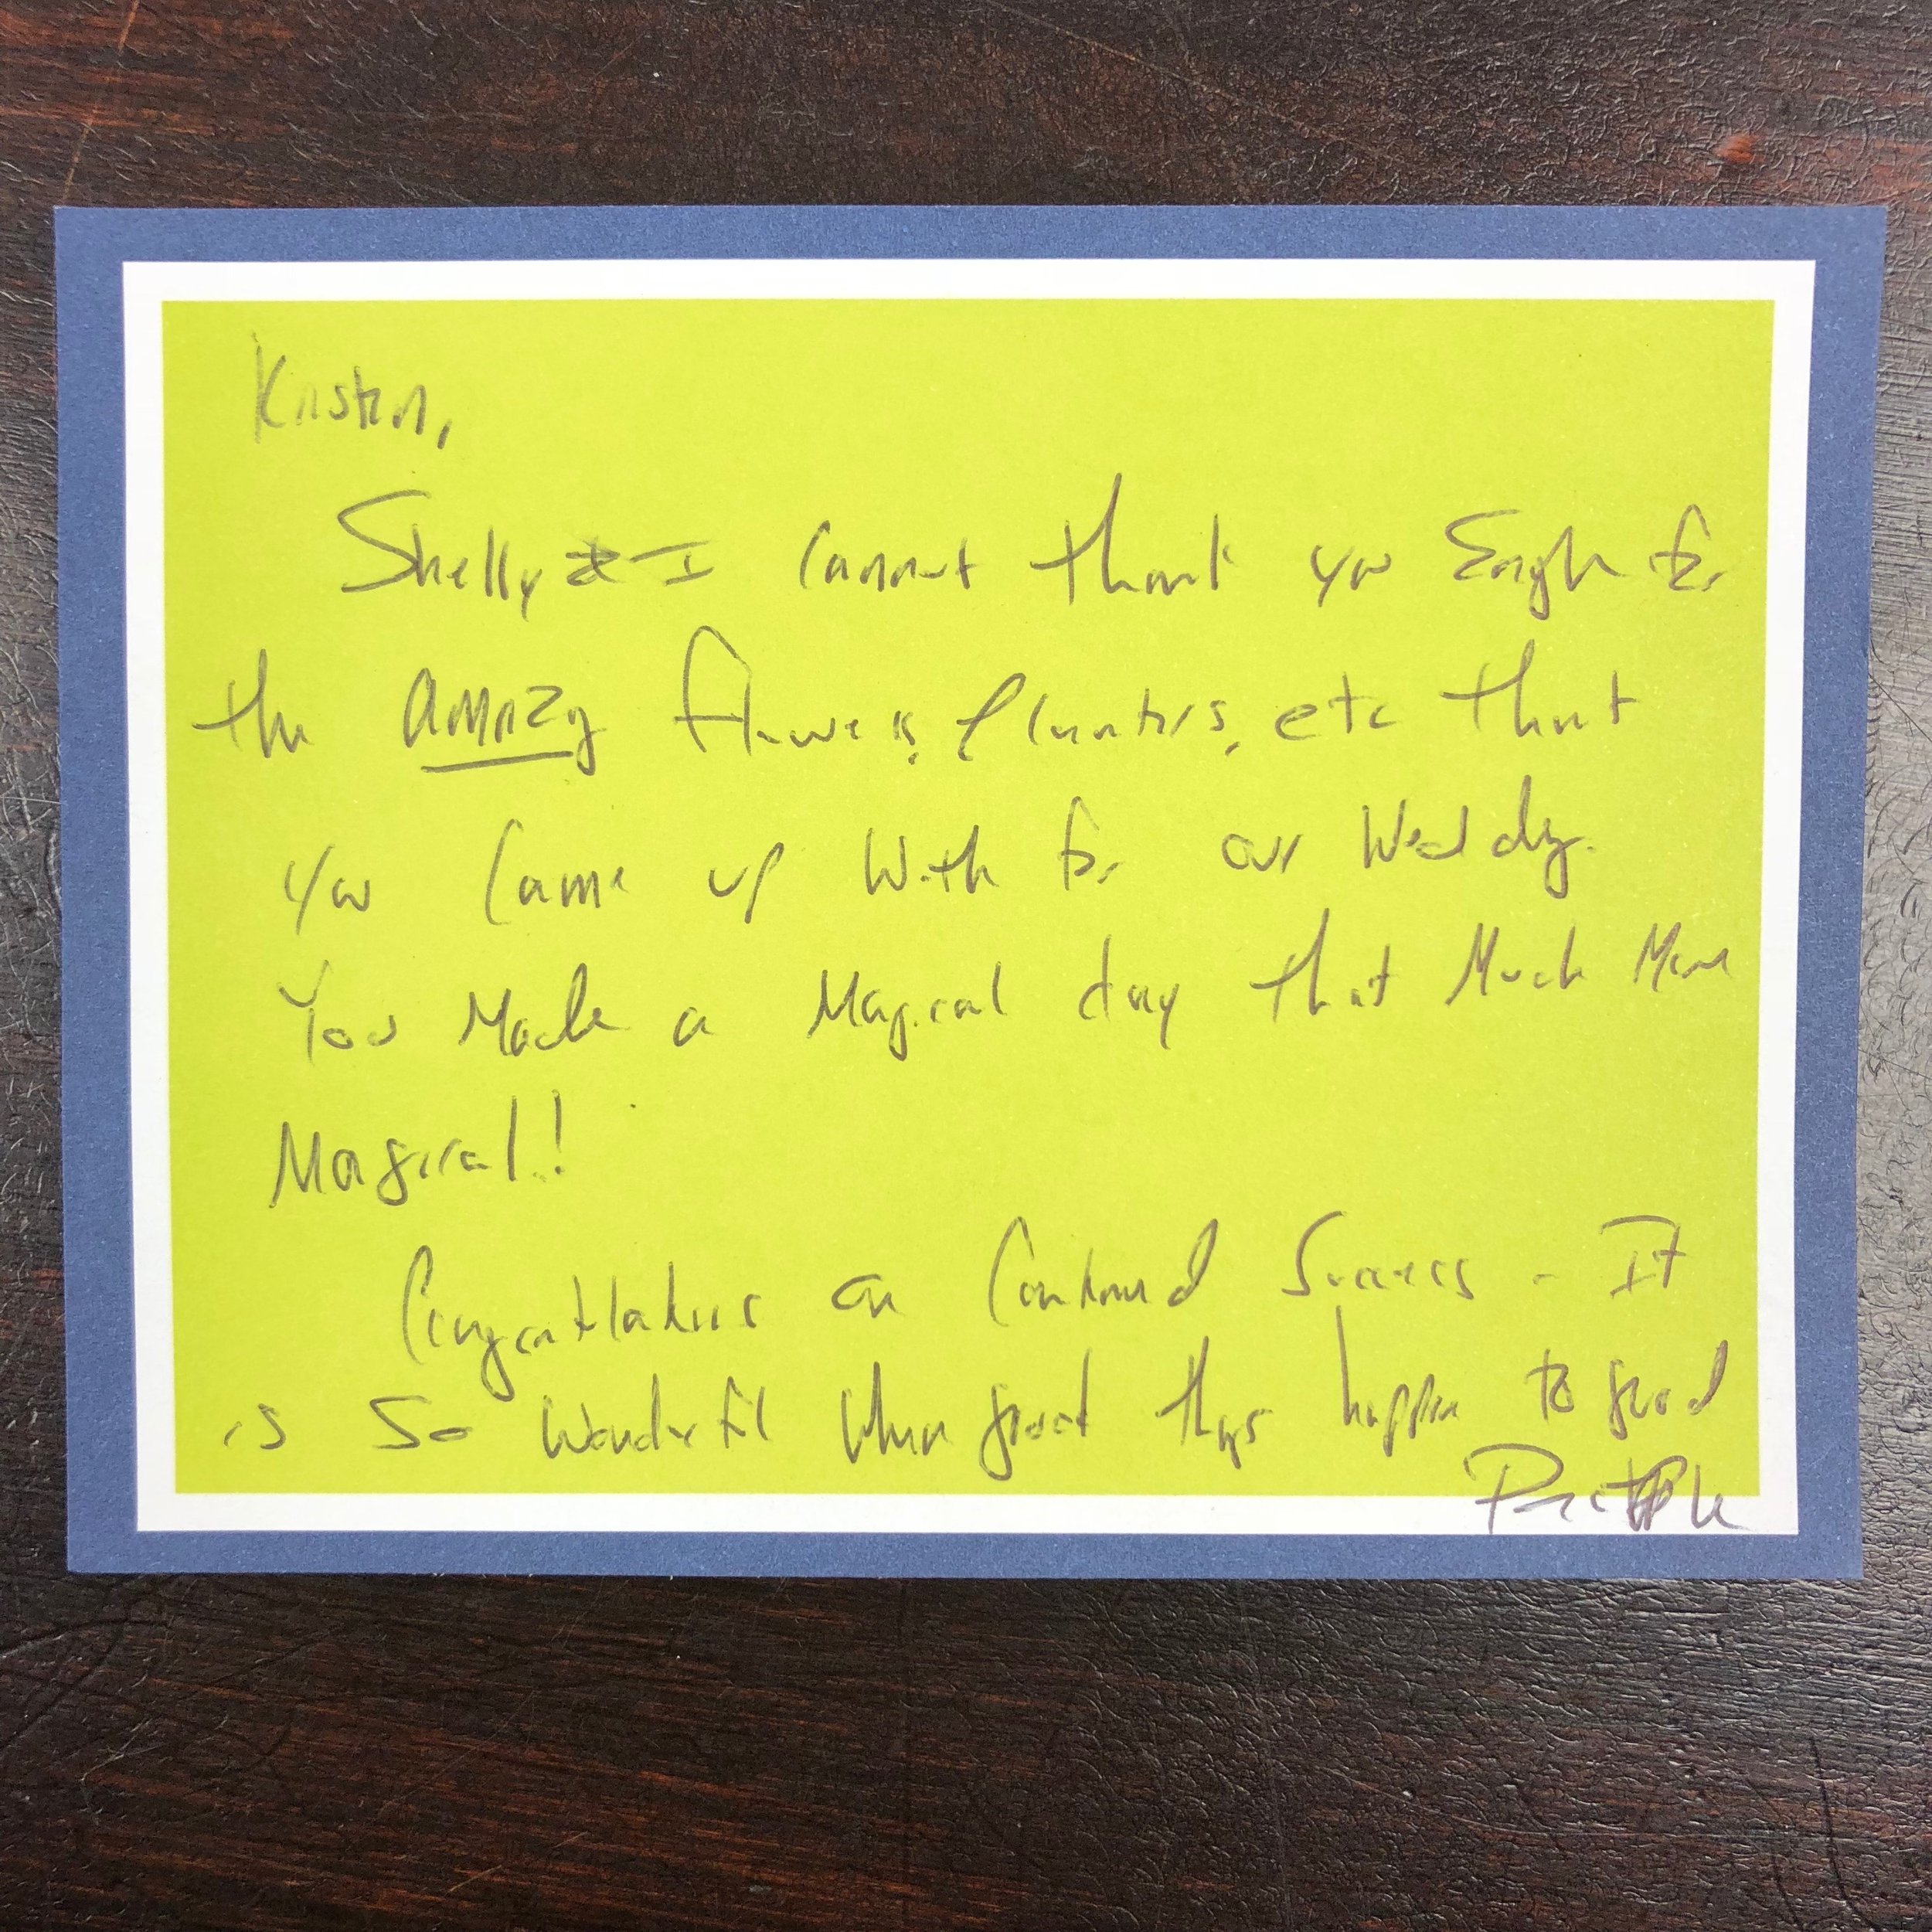 Kristen,
Shelly & I cannot thank you Enough for
the amazing flowers, planters, etc that
you came up with for our Wedding.
You Made a Magical day that Much More
Magical!!
Congratulations on Continued Success - It
is so wonderful when great things happen to good
People